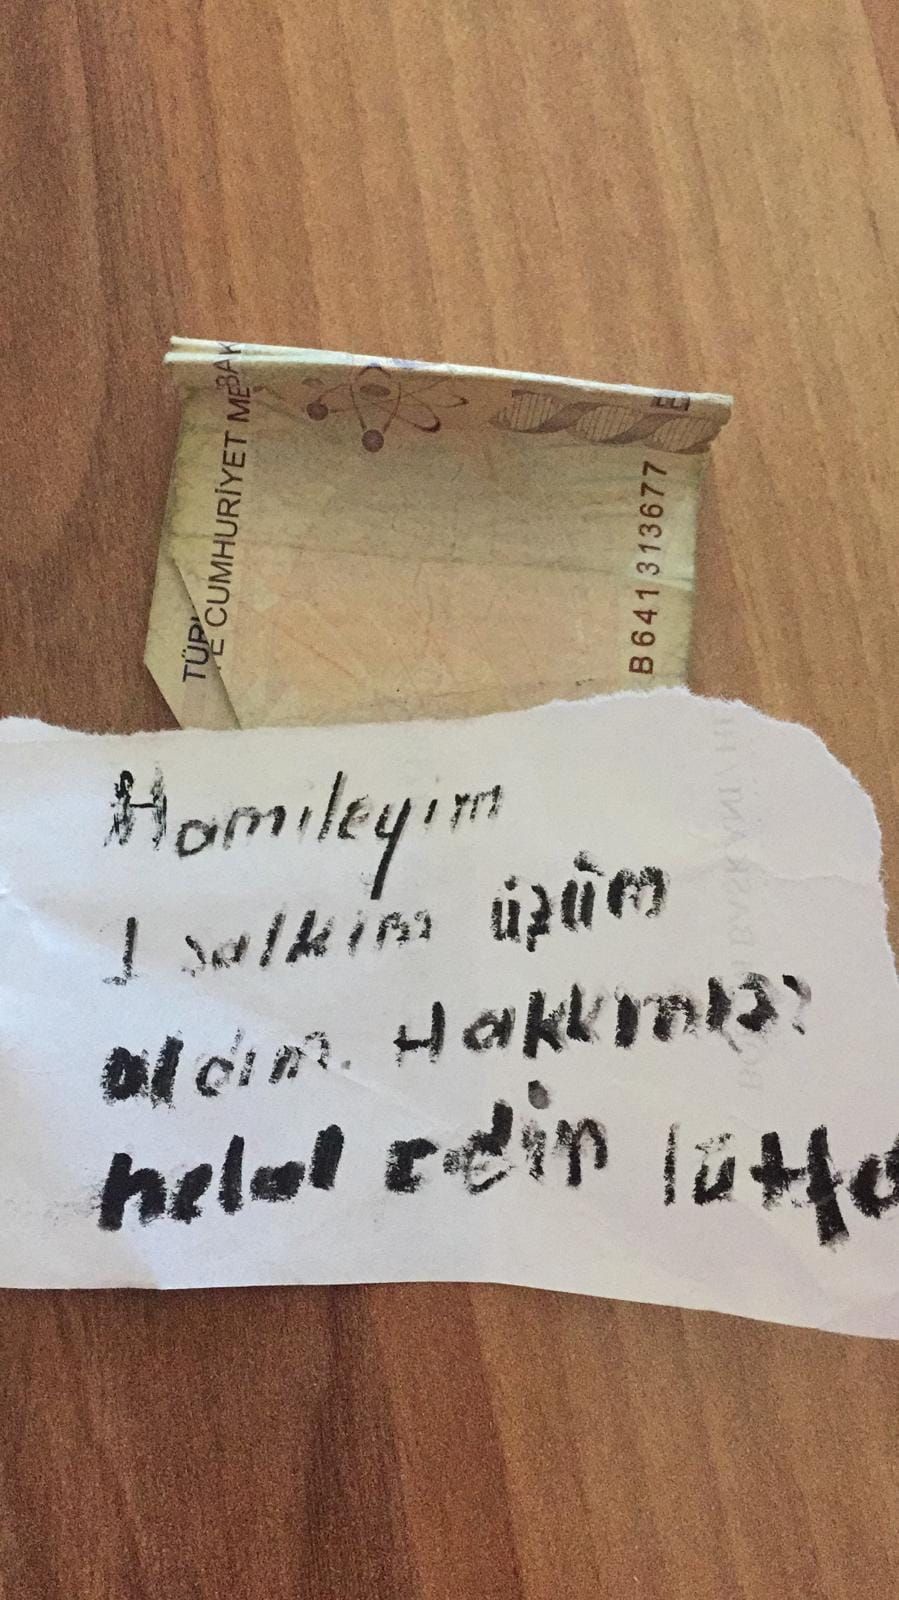 BAK
TÜR
E CUMHURİYET ME
B641313677
Hamileyim
1 salkım üzüm
aldım. Hakkınızı
helal edin lütfe